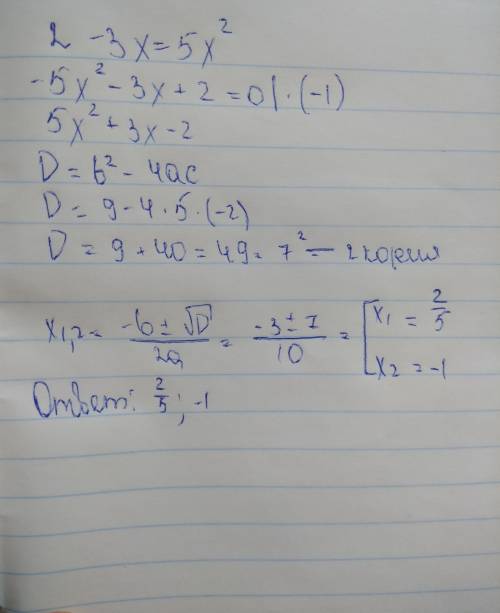 2 - 3x = 5x²
-5x² - 3x + 2 = 0 | · (-1)
5x² + 3x - 2
D = b² - 4ac
D = 9 - 4 · 5 · (-2)
D = 9 + 40 = 49 = 7² — 2 корня
x₁,₂ = (-b ± √D)/2a = (-3 ± 7)/10 = [x₁ = 2/5
x₂ = -1
Ответ: 2/5 ; -1